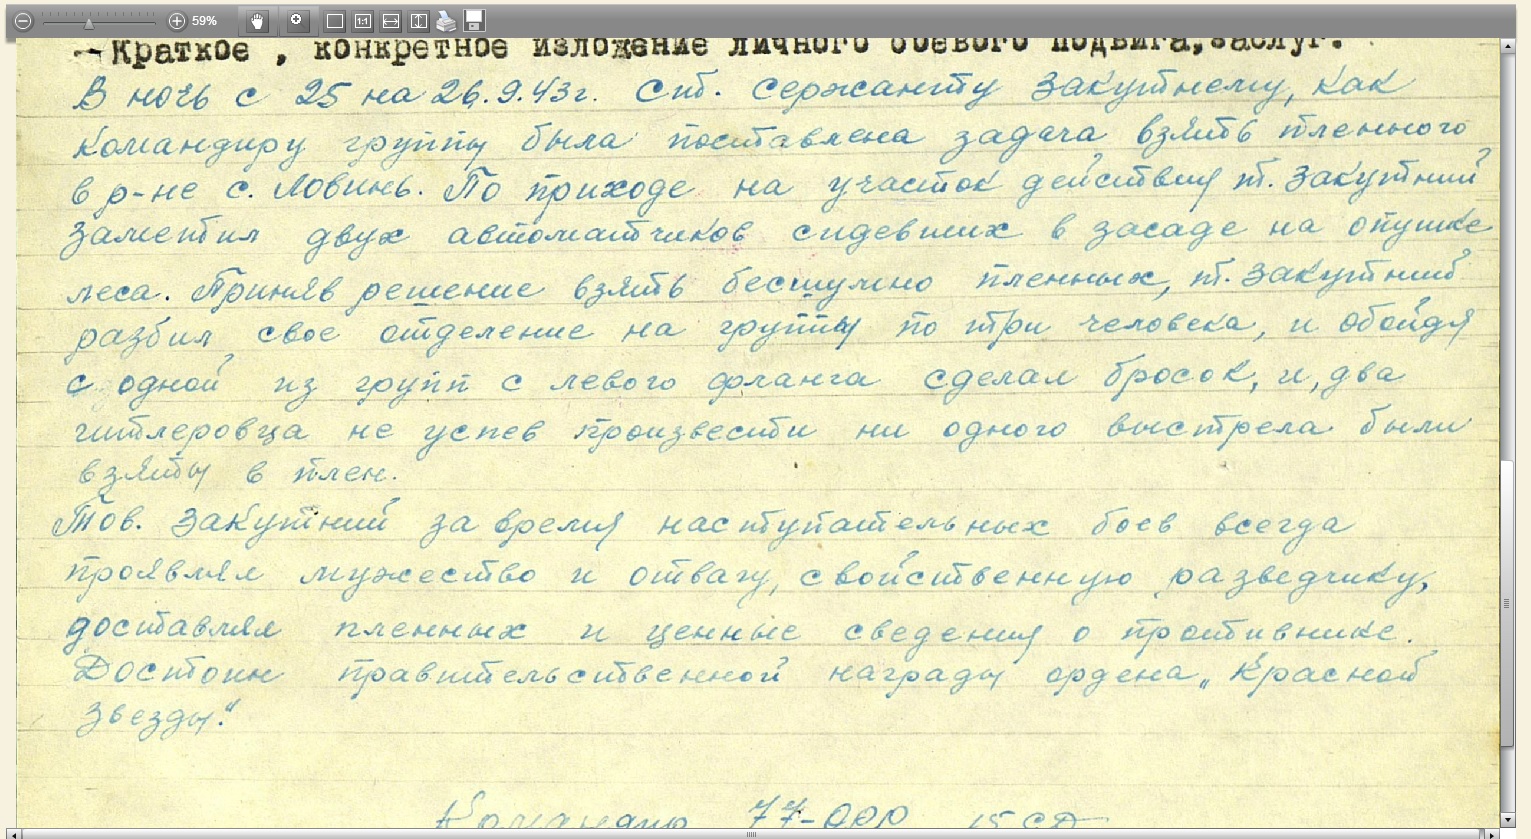 59%
1:1
Краткое, конкретное изложение личного боевого подвига, заслуг.
В ночь с 25 на 26.9.43г. Ст. Сержанту Закутнему, как
командиру группы была поставлена задача взять пленного
в р-не с. Ловинь. По приходе на участок действия т. Закутний
заметил двух автоматчиков сидевших в засаде на опушке
леса. Приняв решение взять бесшумно пленных, т. Закутний
разбил свое отделение на группы по три человека, и обойдя
с одной из групп с левого фланга сделал бросок, и, два
гитлеровца не успев произвести ни одного выстрела были
взяты в плен.
Тов. Закутний за время наступательных боев всегда
проявлял мужество и отвагу, свойственную разведчику,
доставляя пленных и ценные сведения о противнике.
Достоин правительственной награды ордена „Красной
Звезды."
77- 15 СД